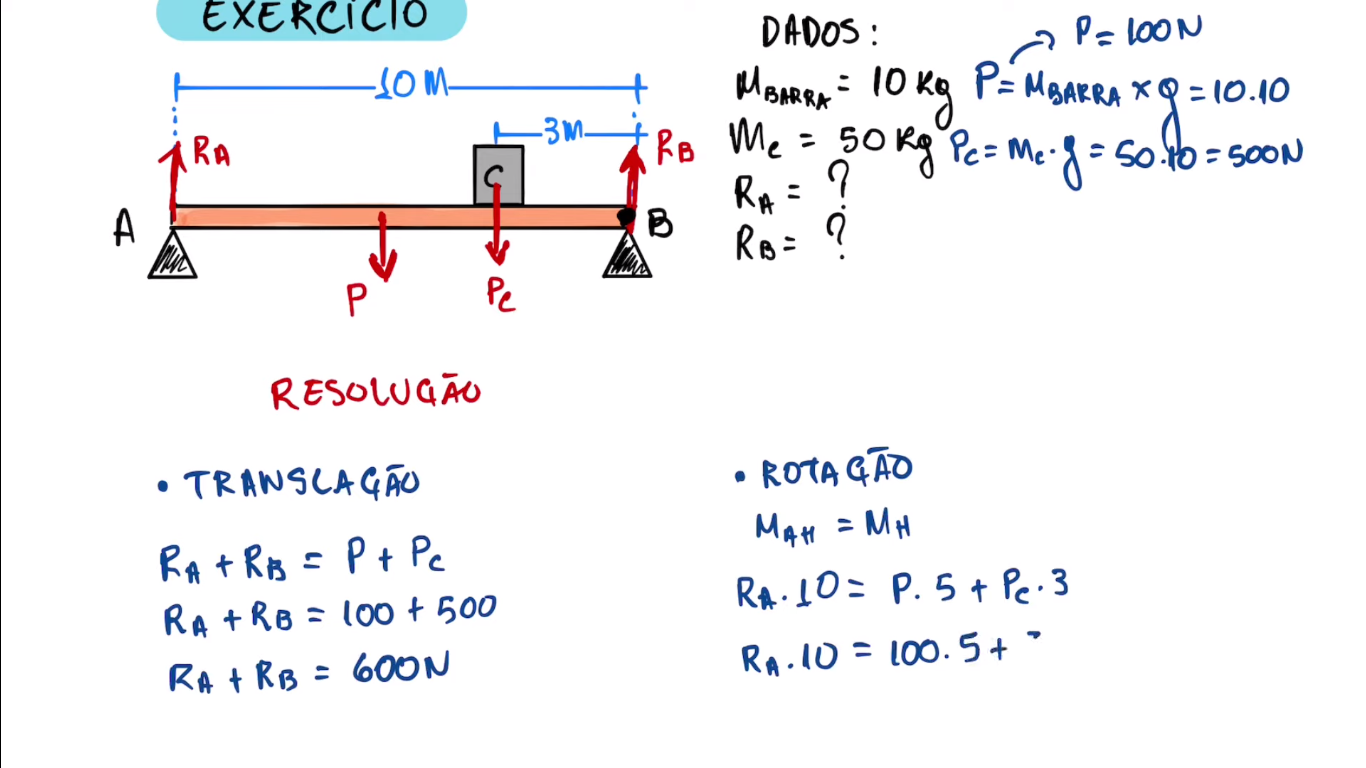 EXERCÍCIO
10 M
3M
RA
RB
C
A
B
P
PC
DADOS:
MBARRA = 10 Kg
MC = 50 Kg
RA = ?
RB = ?
P = 100N
P = MBARRA x g = 10.10
PC = MC . g = 50.10 = 500N
RESOLUÇÃO
• TRANSLAÇÃO
RA + RB = P + PC
RA + RB = 100 + 500
RA + RB = 600N
• ROTAÇÃO
MAH = MH
RA . 10 = P. 5 + PC . 3
RA . 10 = 100. 5 +